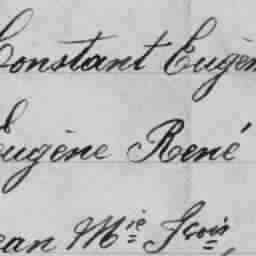 Constant Eugèn
Eugène René
ean Mie Fçois